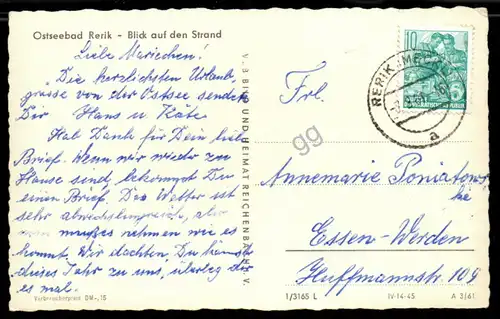 Ostseebad Rerik - Blick auf den Strand
Liebe Mariechen!
Die herzlichsten Urlaubs-
grüsse von der Ostsee senden
Dir Hans u. Käte.
Hab Dank für Dein lieb.
Brief. Wenn wir wieder zu
Hause sind, bekommst Du
einen Brief. Das Wetter ist
sehr abwechslungsreich, aber
man muß es nehmen wie es
kommt. Wir dachten, Du kommst
dieses Jahr zu uns, überleg dir
es mal.
Verbraucherpreis DM -,15
V. B BILD UND HEIMAT REICHENBACH I. V.
gg
10
DEUTSCHE DEMOKRATISCHE REPUBLIK
RERIK
a
Frl.
Annemarie Poniatow-
ske
Essen-Werden
Huffmannstr. 109
1/3165 L
IV-14-45
A 3/61